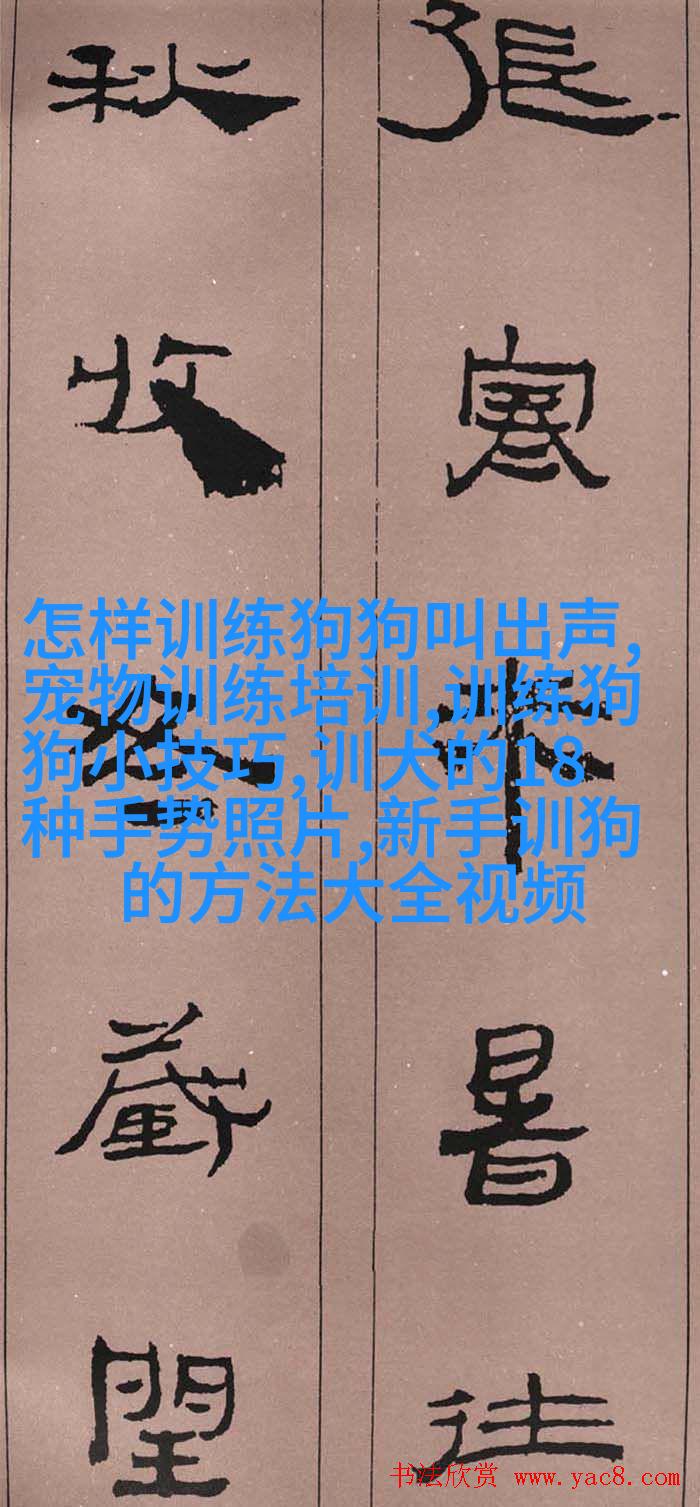 張寒來暑往
秋收冬藏閏
怎样训练狗狗叫出声,
宠物训练培训,训练狗
狗小技巧,训犬的18
种手势照片,新手训狗
的方法大全视频
书法欣赏 www.yac8.com